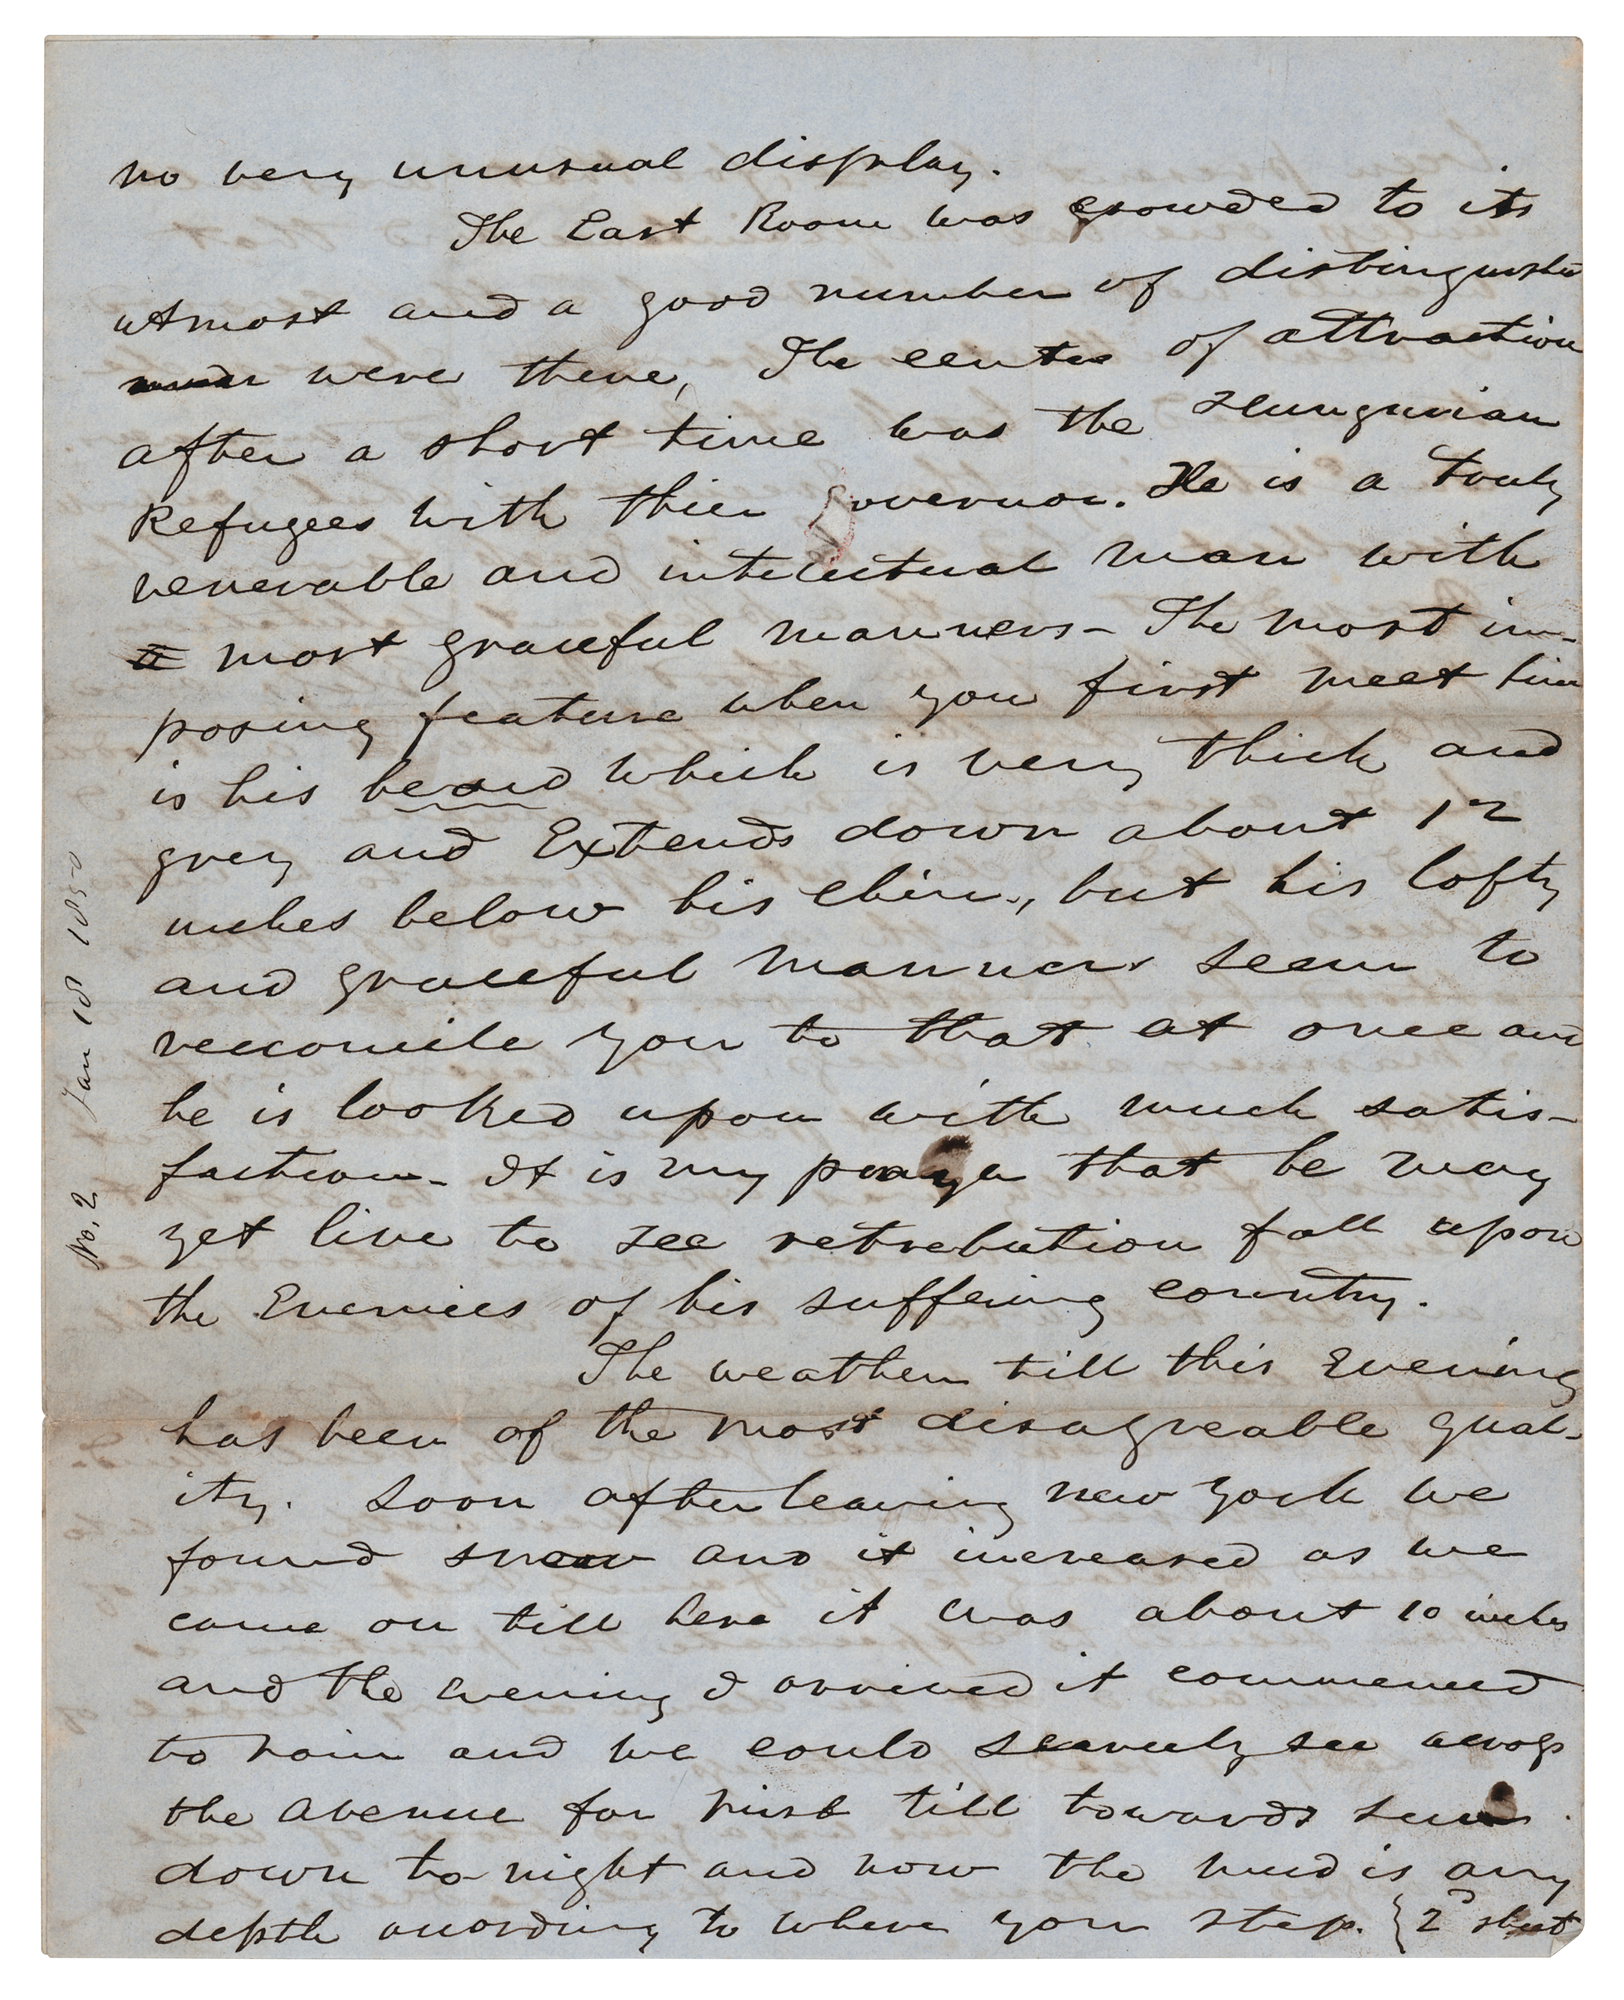 no very unusual display.
The East Room was crowded to its
utmost and a good number of distinguished
were there, The center of attraction
after a short time was the Hungarian
Refugees with thier Governor. He is a truly
venerable and intelectual man with
most graceful manners - The most im-
posing feature when you first meet him
is his beard which is very thick and
grey and Extends down about 12
inches below his chin, but his lofty
and graceful manners seem to
reconcile you to that at once and
he is looked upon with much satis-
faction - It is my prayer that he may
yet live to see retrebution fall upon
the Enemies of his suffering country.
The weather till this Evening
has been of the most disagreable qual-
ity. Soon after leaving New York we
found snow and it increased as we
came on till here it was about 10 inches
and the evening I arrived it commenced
to rain and we could scarcely see across
the avenue for mist till towards sun
down to-night and now the mud is any
depth according to where you step. {2d sheet
No. 2 Jan 18 1850